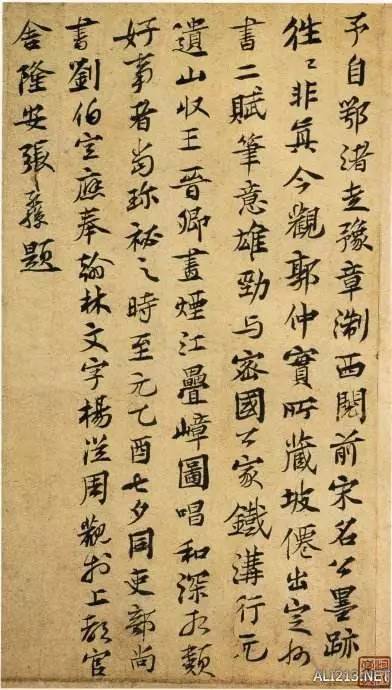 予自鄂渚走豫章淛西閱前宋名公墨跡
往々非真今觀郭仲實所藏坡僊出定州
書二賦筆意雄勁与密國公家鐵溝行元
遺山收王晉卿畫煙江疊嶂圖唱和深相類
好事者尚珍祕之時至元乙酉七夕同吏部尚
書劉伯宣應奉翰林文字楊從周觀扵上都官
舍隆安張題
ALI213.NET